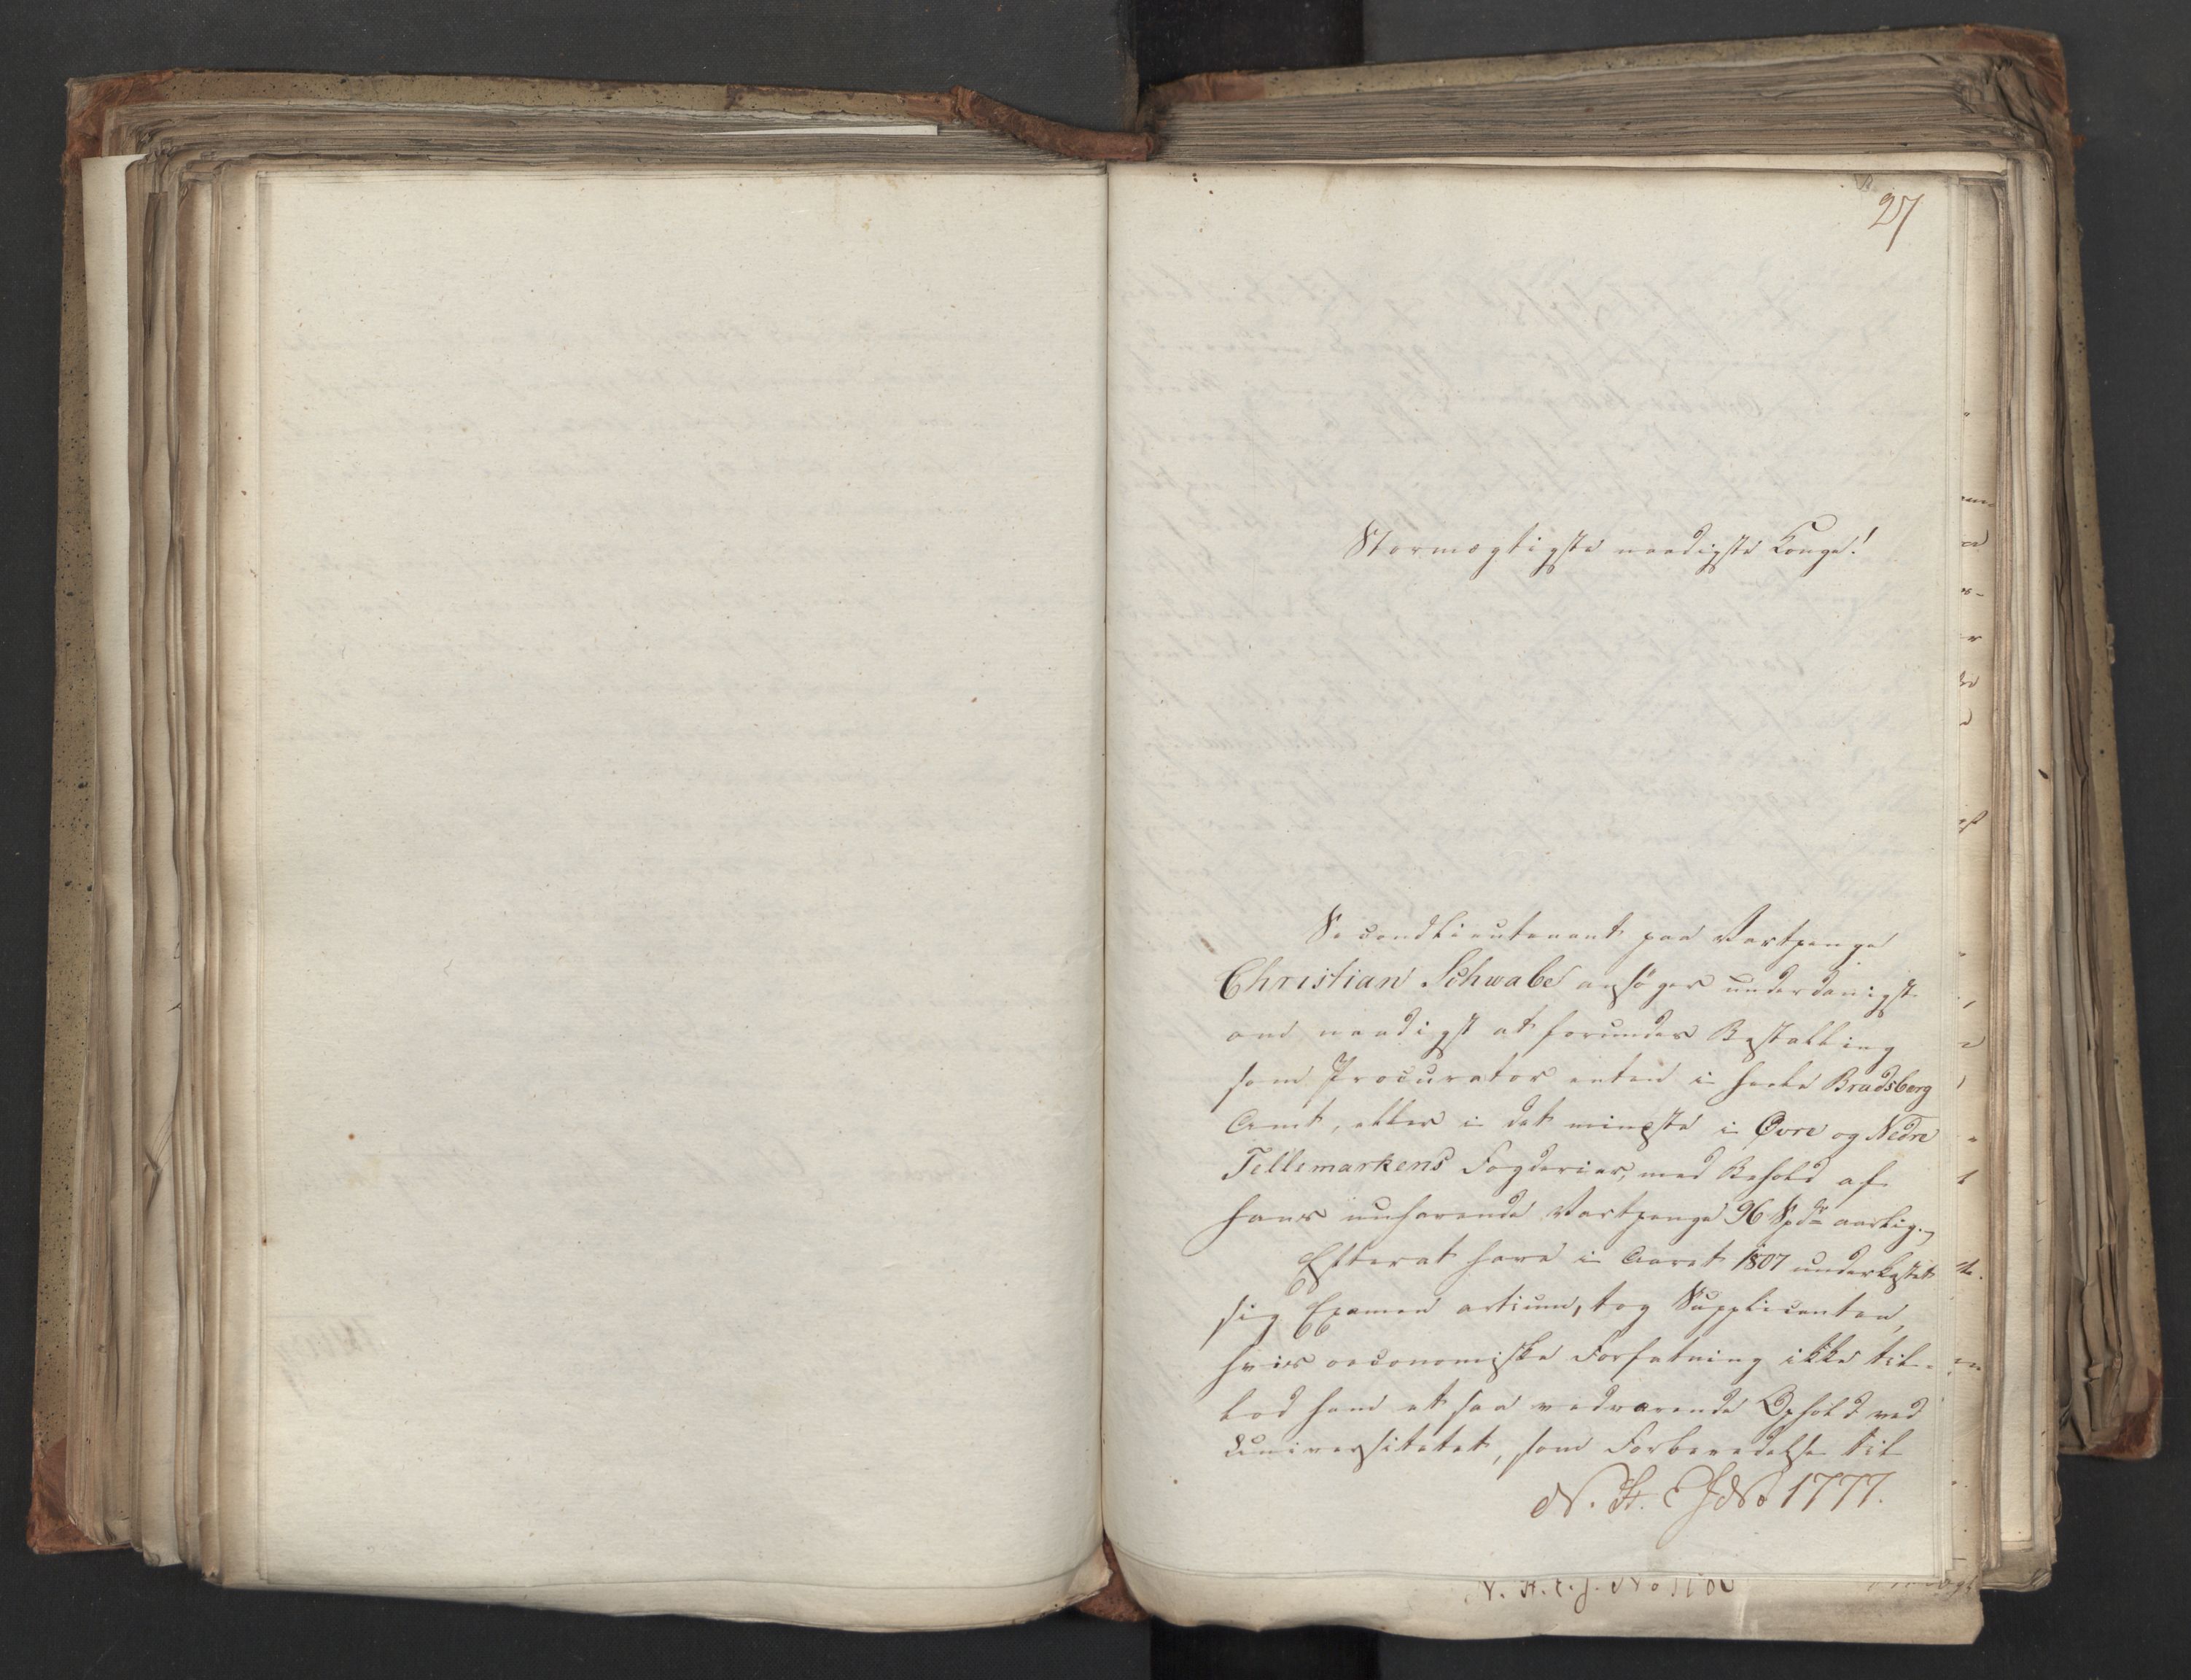 27
Stormægtigste naadigste Konge!
Secondlieutenant paa Vartpenge
Christian Schwabe ansøger underdanigst
om naadigst at forundes Bestalling
som Procurator enten i hele Bradsberg
Amt, eller i det mindste i Øvre og Nedre
Tellemarkens Fogderier, med Behold af
hans nuhavende Vartpenge 96 Spdr aarlig.
Efterat have i Aaret 1807 underkastet
sig Examen artium, tog Supplicanten,
hvis oeconomiske Forfatning ikke til-
lod ham et saa vedvarende Ophold ved
Universitetet, som Forberedelse til
N. H. E J No 1777.